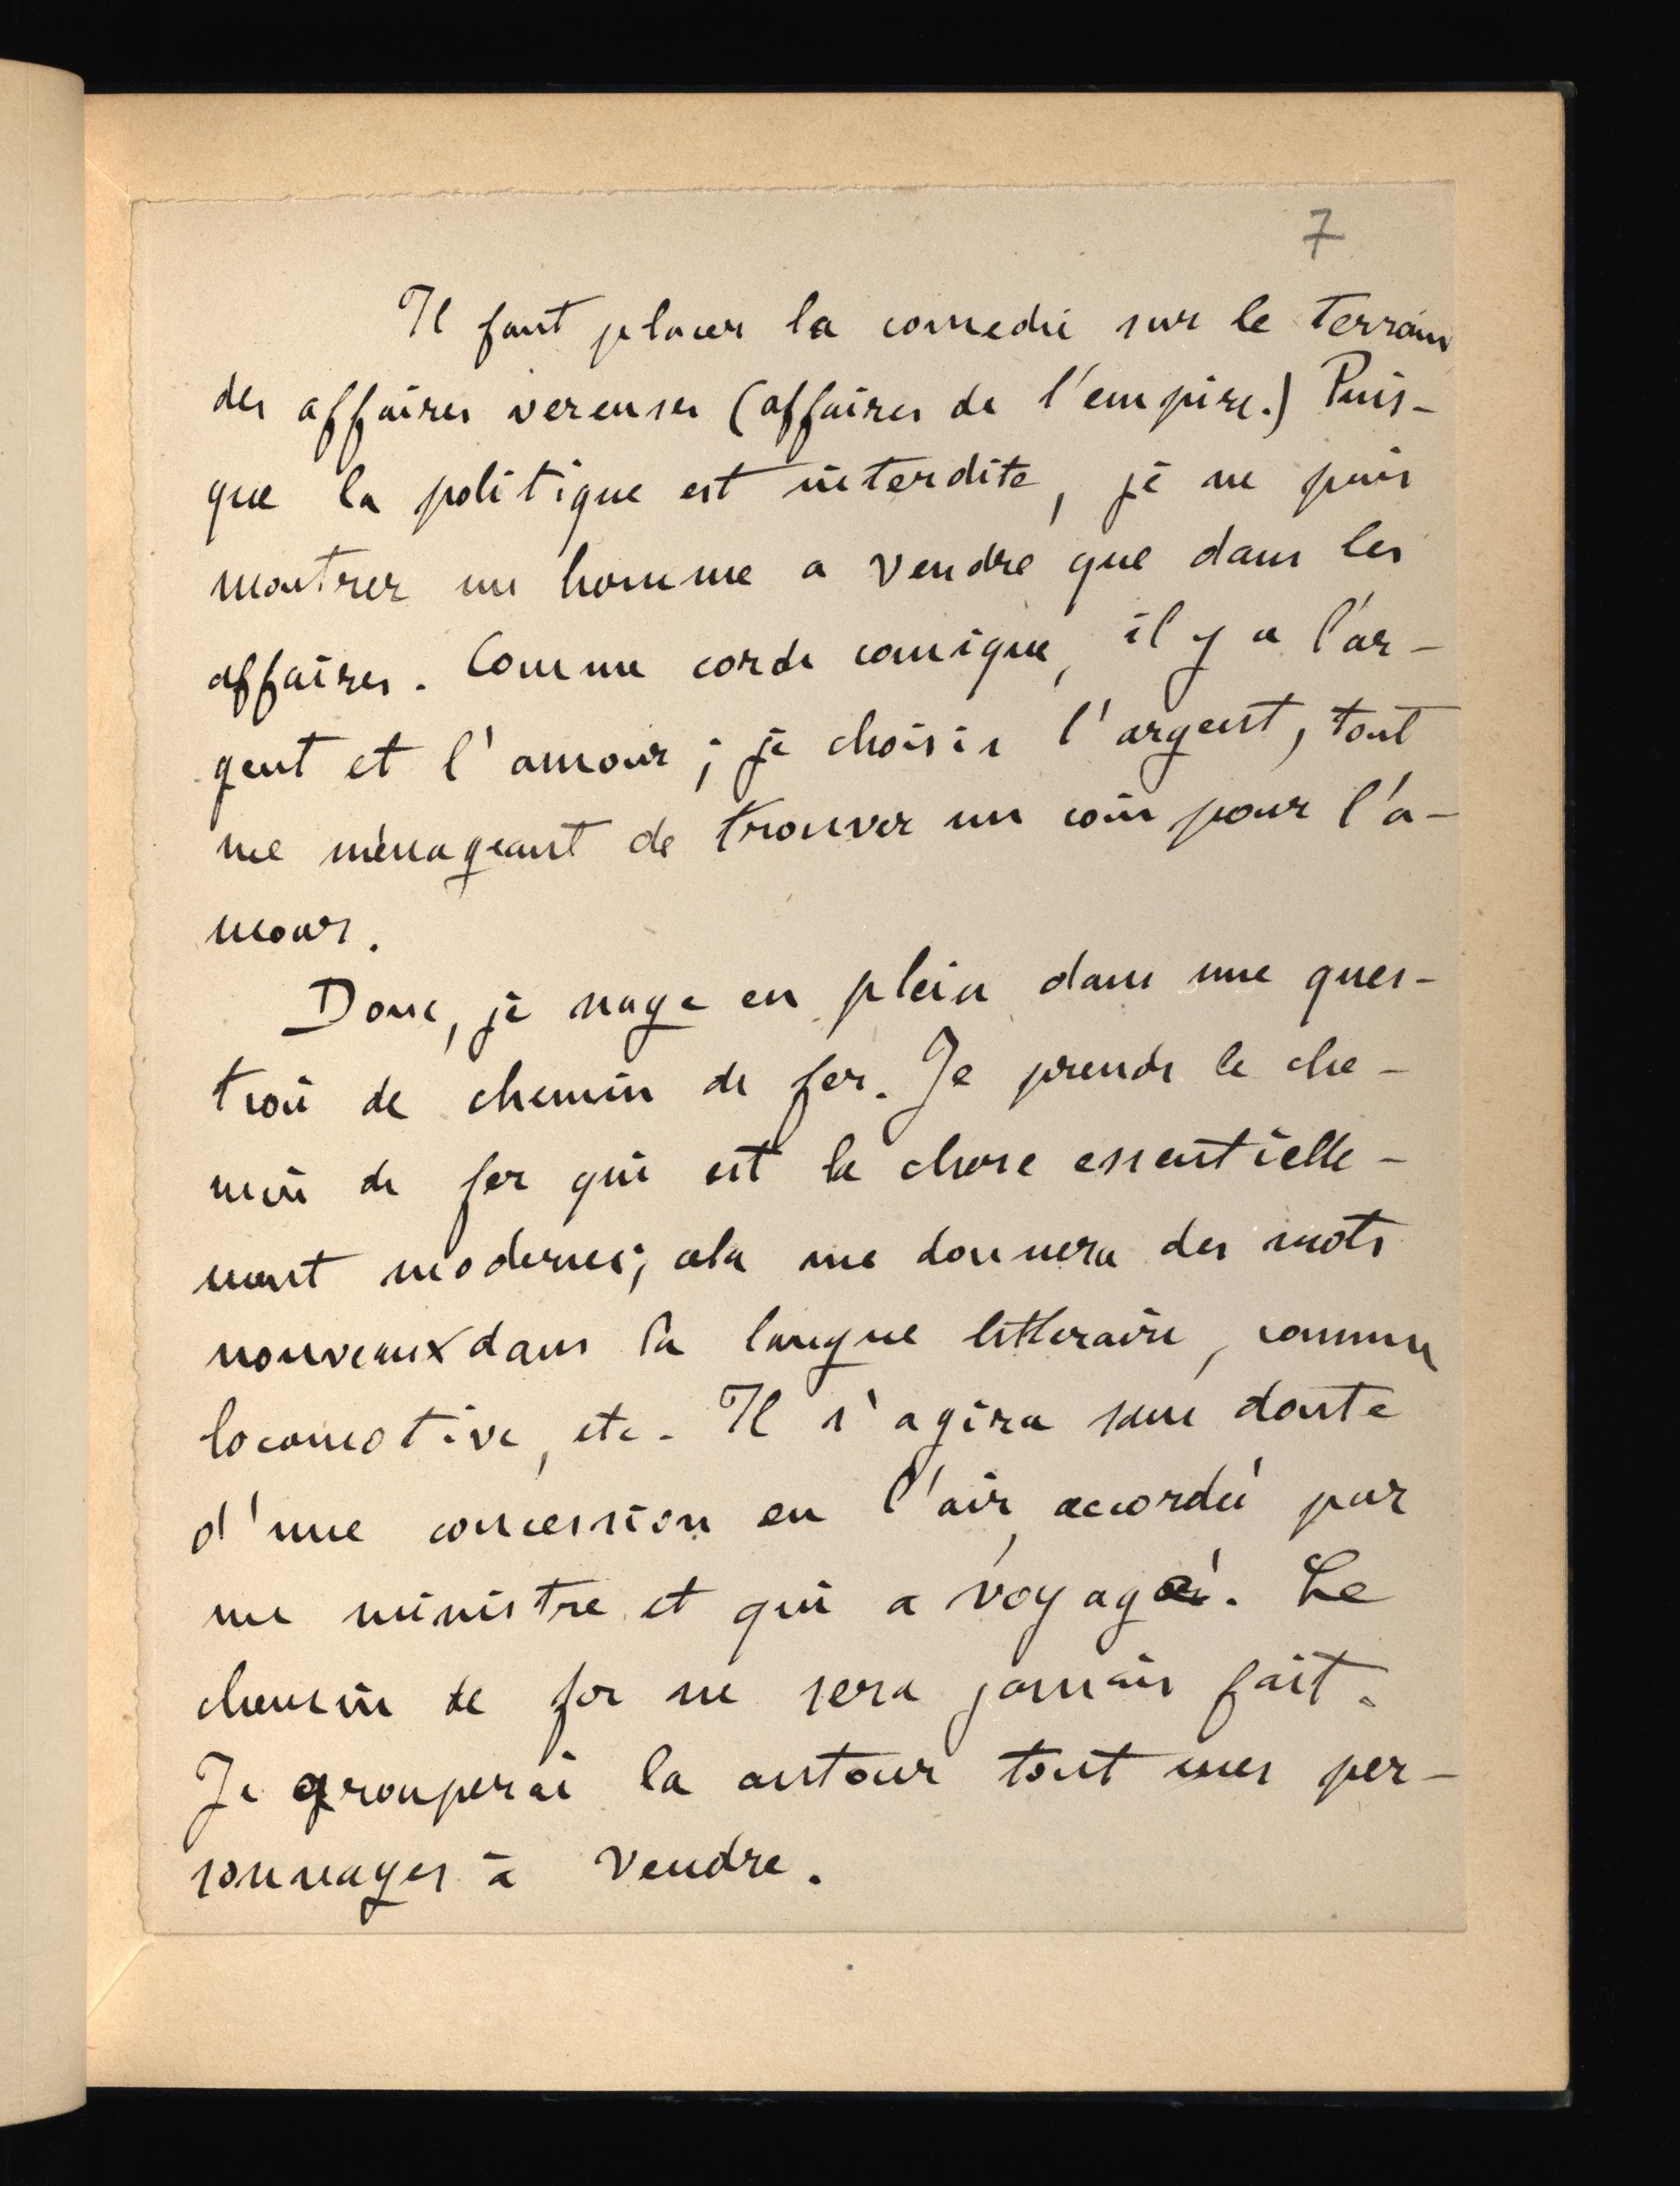 7
Il faut placer la comedie sur le terrain
des affaires vereuses (affaires de l'empire.) Puis-
que la politique est interdite, je ne puis
montrer un homme a vendre que dans les
affaires. Comme corde comique, il y a l'ar-
gent et l'amour ; je choisis l'argent, tout
me ménageant de trouver un coin pour l'a-
mour.
Donc, je nage en plein dans une ques-
tion de chemin de fer. Je prends le che-
min de fer qui est la chose essentielle-
ment moderne; cela me donnera des mots
nouveaux dans la langue litteraire, comme
locomotive, etc. Il s'agira sans doute
d'une concession en l'air, accordée par
un ministre et qui a voyagé. Le
chemin de fer ne sera jamais fait.
Je grouperai la autour tout mes per-
sonnages à vendre.